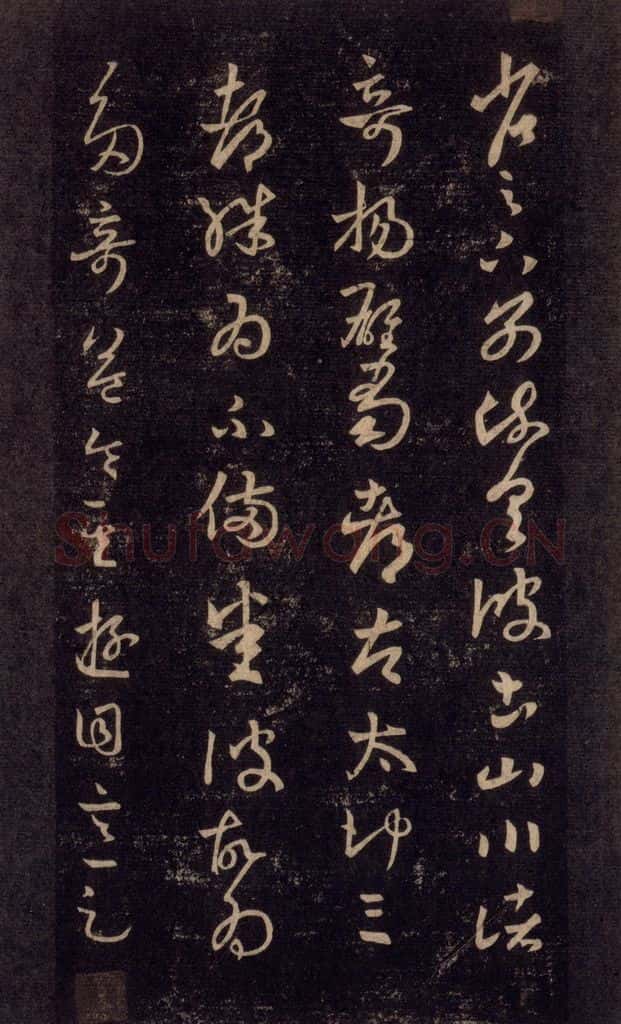 省足下別疏具彼土山川諸
奇揚雄蜀都左太沖三
都殊為不備悉彼故為
多奇益令其遊目意足也
Shufawang.CN